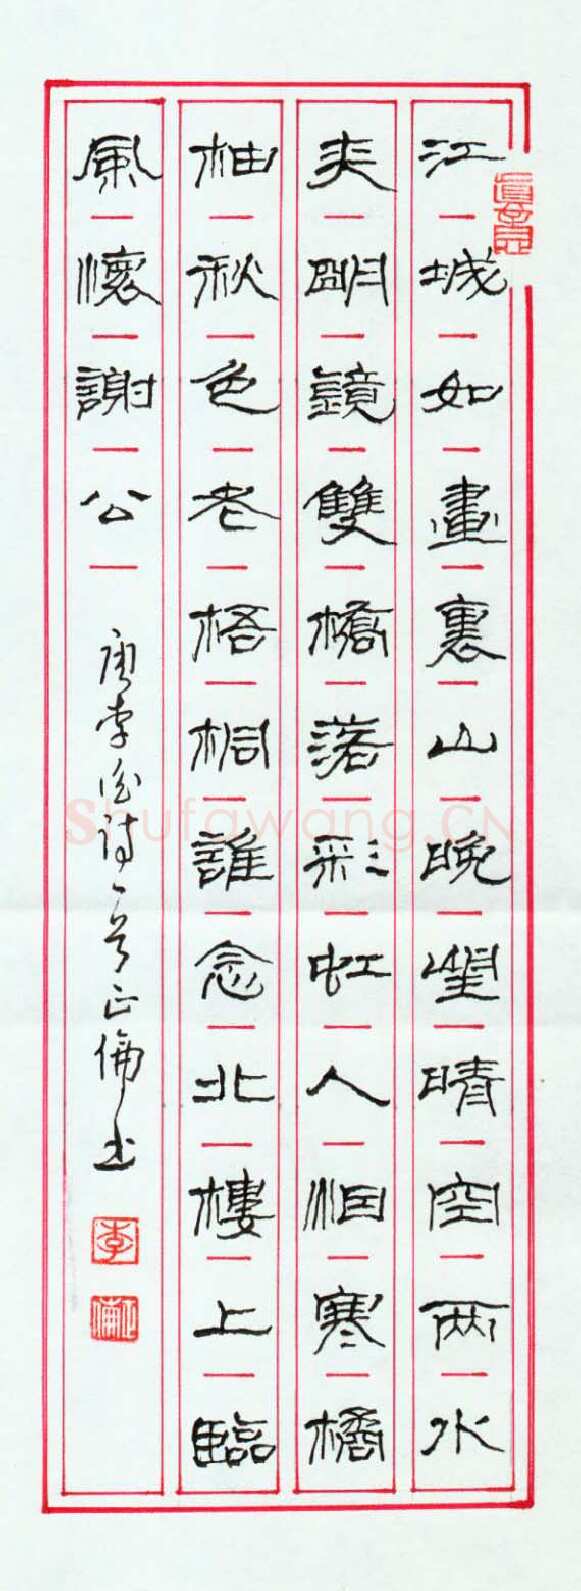 江城如畫裏山晚望晴空两水
夾明鏡雙橋落彩虹人烟寒橘
柚秋色老梧桐誰念北樓上臨
風懷謝公
唐李白詩一首正倫书
李
正倫
Shufawang.CN